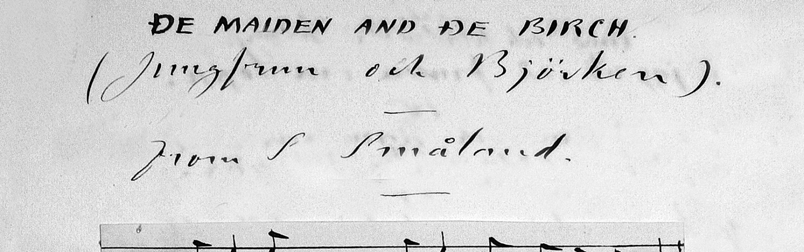 ĐE MAIDEN AND ĐE BIRCH.
(Jungfrun och Björken).
from S Småland.